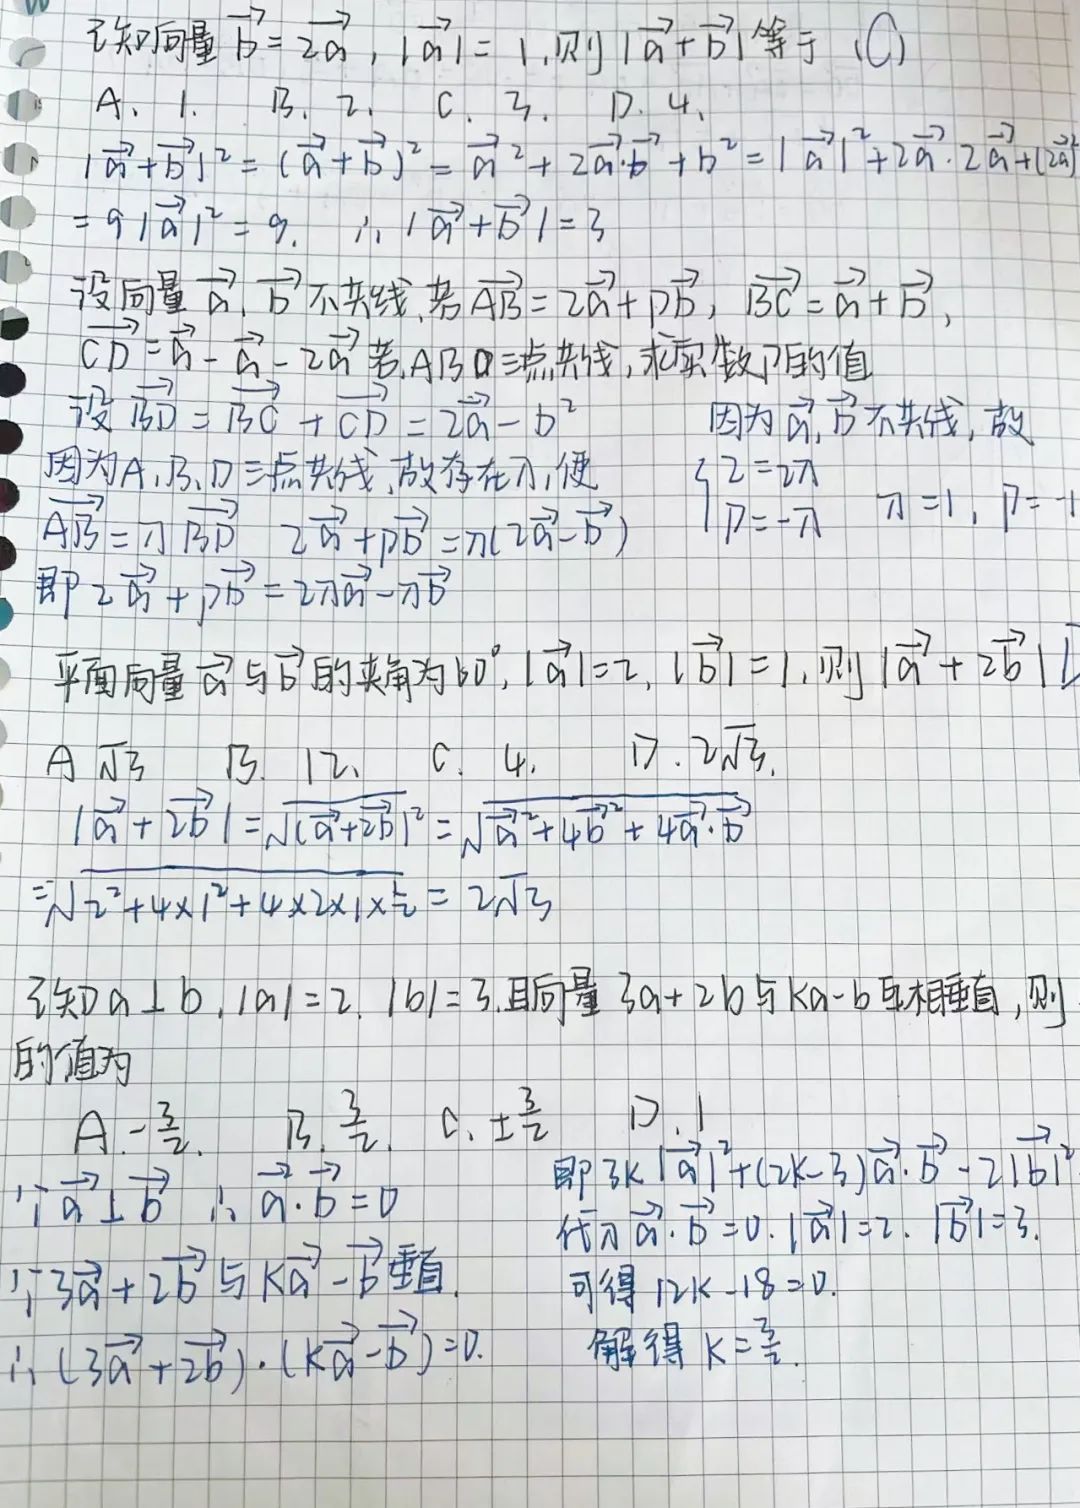 已知向量 b⃗ = 2a⃗, |a⃗| = 1, 则 |a⃗ + b⃗| 等于 (C)
A. 1. B. 2. C. 3. D. 4.
|a⃗ + b⃗|² = (a⃗ + b⃗)² = a⃗² + 2a⃗·b⃗ + b² = |a⃗|² + 2a⃗·2a⃗ + (2a⃗)²
= 9|a⃗|² = 9. ∴ |a⃗ + b⃗| = 3
设向量 a⃗, b⃗ 不共线, 若 AB⃗ = 2a⃗ + pb⃗, BC⃗ = a⃗ + b⃗,
CD⃗ = a⃗ - a⃗ - 2a⃗ 若 A B D 三点共线, 求实数 P 的值
设 BD⃗ = BC⃗ + CD⃗ = 2a⃗ - b²
因为 A, B, D 三点共线, 故存在 λ, 使
AB⃗ = λBD⃗ 2a⃗ + pb⃗ = λ(2a⃗ - b⃗)
即 2a⃗ + pb⃗ = 2λa⃗ - λb⃗
因为 a⃗, b⃗ 不共线, 故
{ 2 = 2λ
P = -λ λ = 1, P = -1
平面向量 a⃗ 与 b⃗ 的夹角为 60°, |a⃗| = 2, |b⃗| = 1, 则 |a⃗ + 2b⃗| D
A √3 B. 12. C. 4. D. 2√3.
|a⃗ + 2b⃗| = √(a⃗ + 2b⃗)² = √a⃗² + 4b⃗² + 4a⃗·b⃗
= √2² + 4×1² + 4×2×1×½ = 2√3
已知 a ⊥ b, |a| = 2. |b| = 3. 且向量 3a + 2b 与 ka - b 互相垂直, 则
的值为
A. -3/2. B. 3/2. C. ±3/2 D. 1
∵ a⃗ ⊥ b⃗ ∴ a⃗·b⃗ = 0
∵ 3a⃗ + 2b⃗ 与 ka⃗ - b⃗ 垂直.
∴ (3a⃗ + 2b⃗)·(ka⃗ - b⃗) = 0.
即 3k|a⃗|² + (2k-3)a⃗·b⃗ - 2|b⃗|²
代入 a⃗·b⃗ = 0. |a⃗| = 2. |b⃗| = 3.
可得 12k - 18 = 0.
解得 k = 3/2.